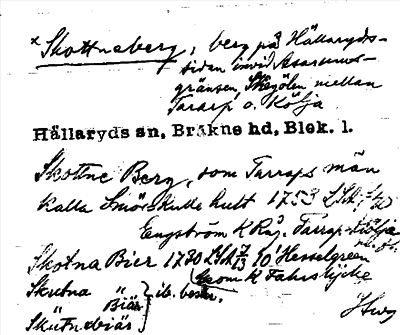 × Skottneberg, berg på Hällaryds-
sidan invid Asarums-
gränsen, Skegölen mellan
Tararp o. Kölja
Hällaryds sn, Bräkne hd, Blek. l.
Skottne Berg, som Tararps män
kalla Smörskulle hult 1753 LSA
Engström K Råj. Tararp-Kölja
Skotna Bier 1730 LSA 7/13 10' Hesselgreen
Geom K Fahrstycke
Skutna Biär } ib. beskr.
Skutndbiär